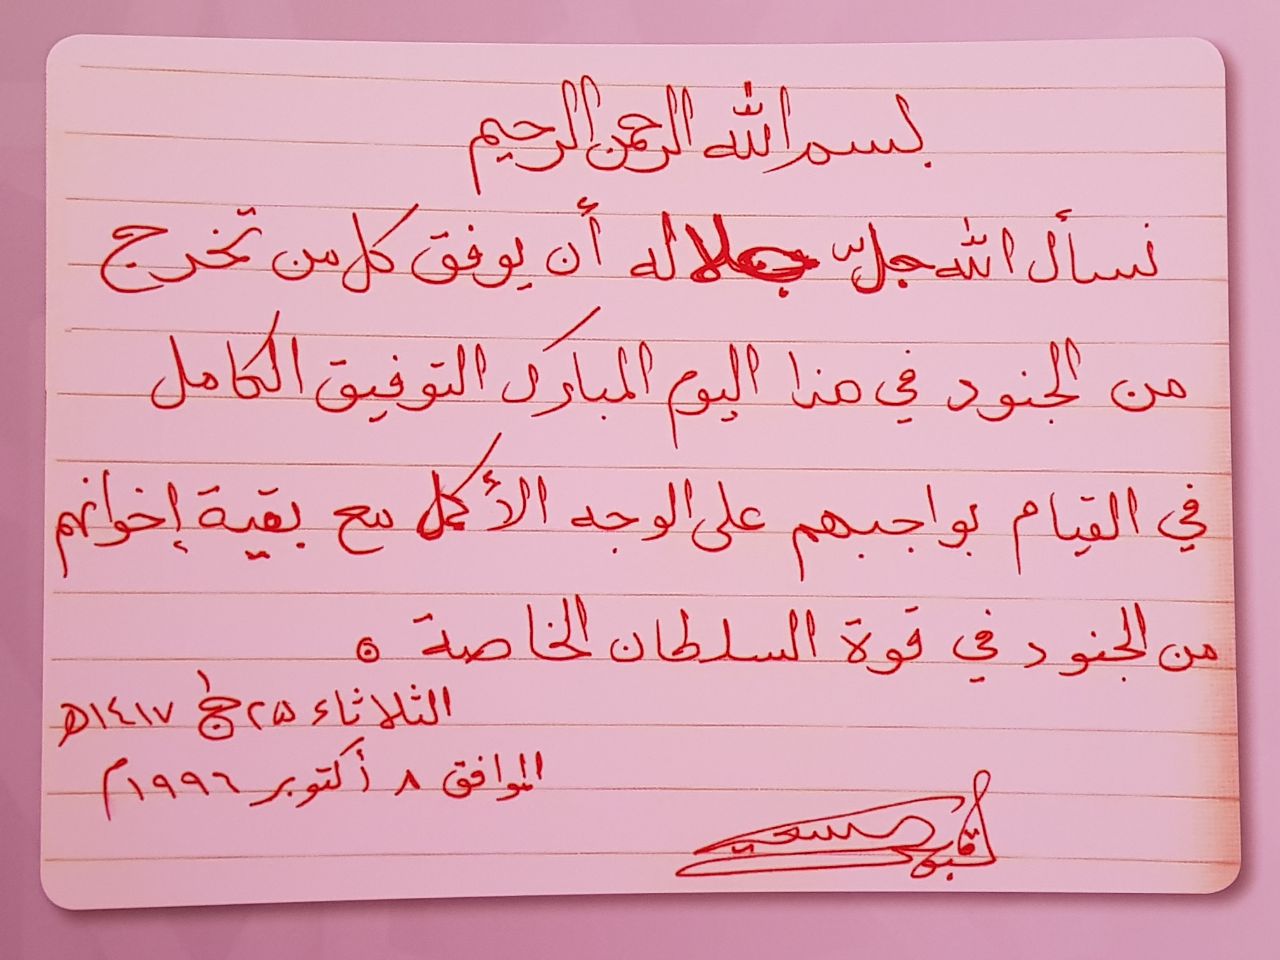 بسم الله الرحمن الرحيم
نسأل الله جلّ جلاله أن يوفق كل من تخرج
من الجنود في هذا اليوم المبارك التوفيق الكامل
في القيام بواجبهم على الوجه الأكمل مع بقية إخوانهم
من الجنود في قوة السلطان الخاصة
الثلاثاء ٢٥ ج١ ١٤١٧ه
الموافق ٨ أكتوبر ١٩٩٦م
قابوس سعيد